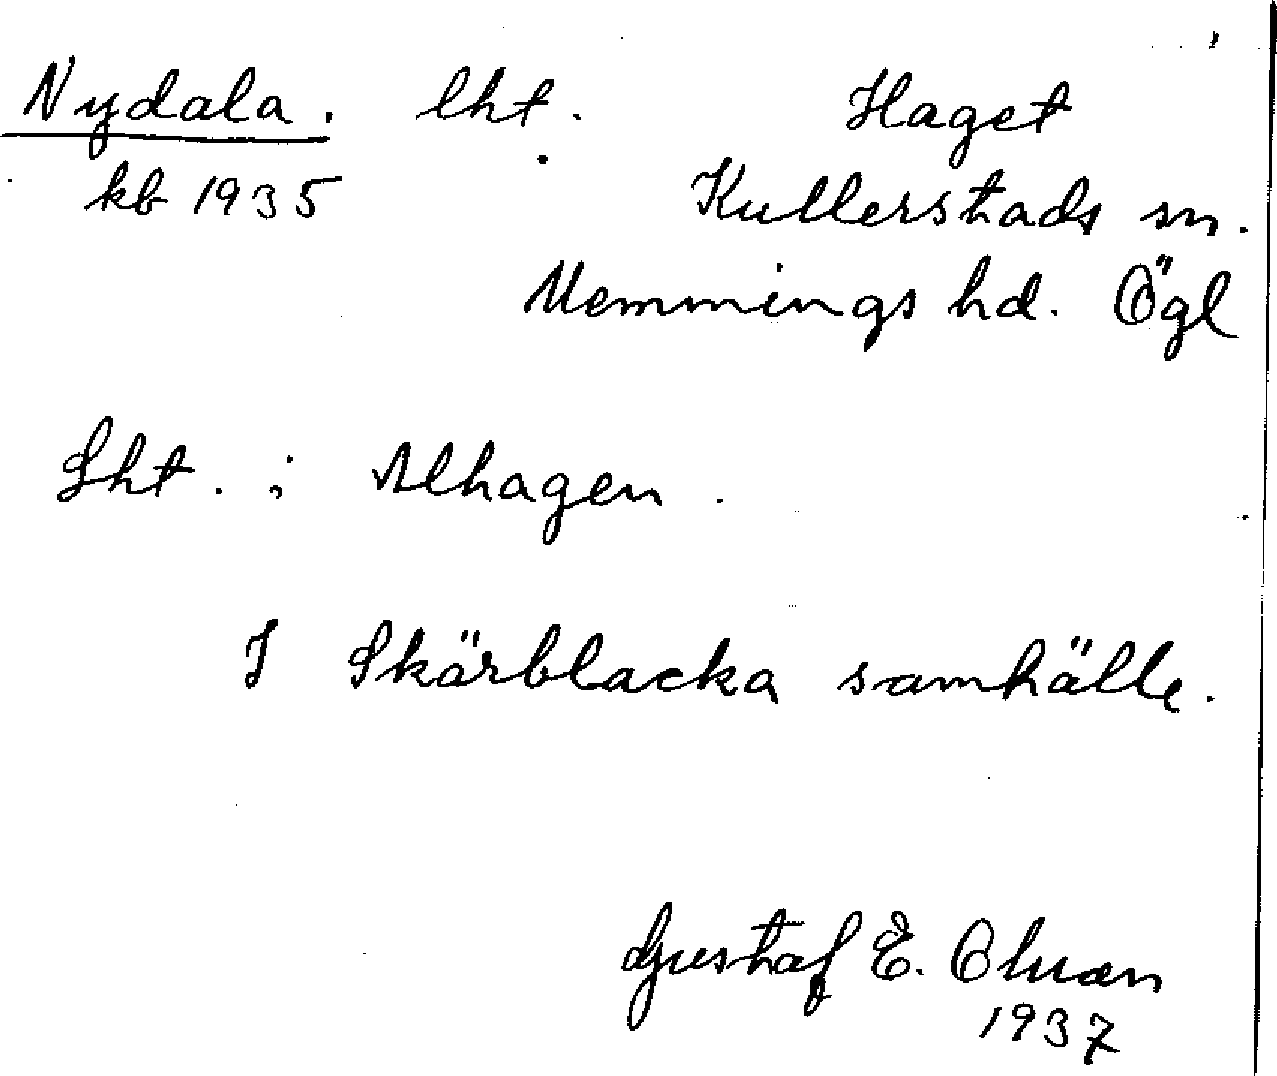 Nydala. lht. Haget
kb 1935 Kullerstads sn.
Memmings hd. Ögl
Lht. i Alhagen.
I Skärblacka samhälle.
Gustaf E.
1937